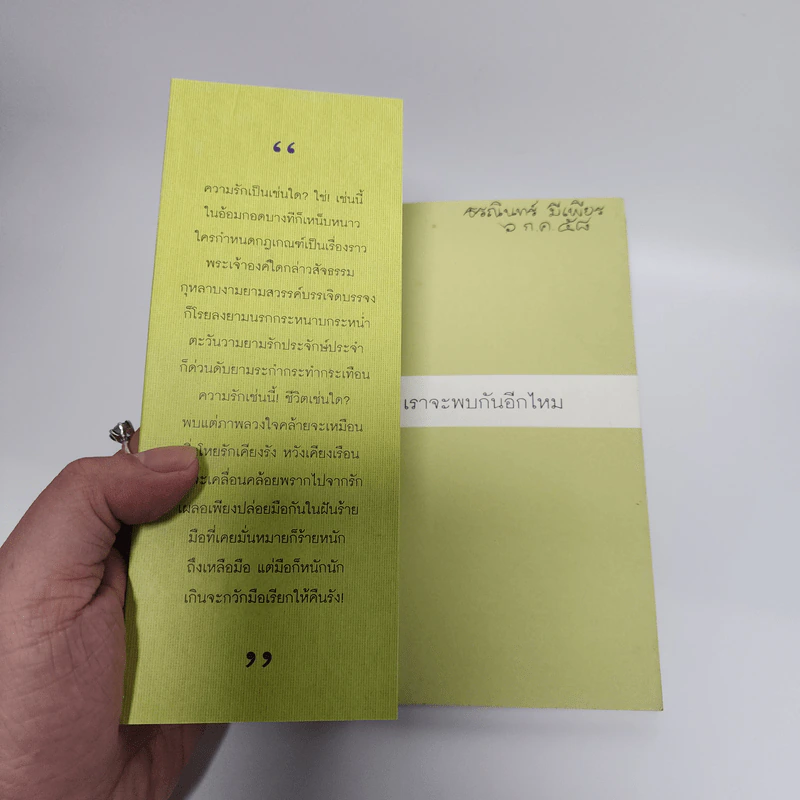 “
ความรักเป็นเช่นใด? ใช่! เช่นนี้
ในอ้อมกอดบางทีก็เหน็บหนาว
ใครกำหนดกฎเกณฑ์เป็นเรื่องราว
พระเจ้าองค์ใดกล่าวสัจธรรม
กุหลาบงามยามสวรรค์บรรเจิดบรรจง
ก็โรยลงยามนรกกระหนาบกระหน่ำ
ตะวันวามยามรักประจักษ์ประจำ
ก็ด่วนดับยามระกำกระทำกระเทือน
ความรักเช่นนี้! ชีวิตเช่นใด?
พบแต่ภาพลวงใจคล้ายจะเหมือน
โหยรักเคียงรัง หวังเคียงเรือน
เคลื่อนคล้อยพรากไปจากรัก
เผลอเพียงปล่อยมือกันในฝันร้าย
มือที่เคยมั่นหมายก็ร้ายหนัก
ถึงเหลือมือ แต่มือก็หนักนัก
เกินจะกวักมือเรียกให้คืนรัง!
”
ธรณินทร์ มีเพียร
๖ ก.ค. ๕๘
เราจะพบกันอีกไหม